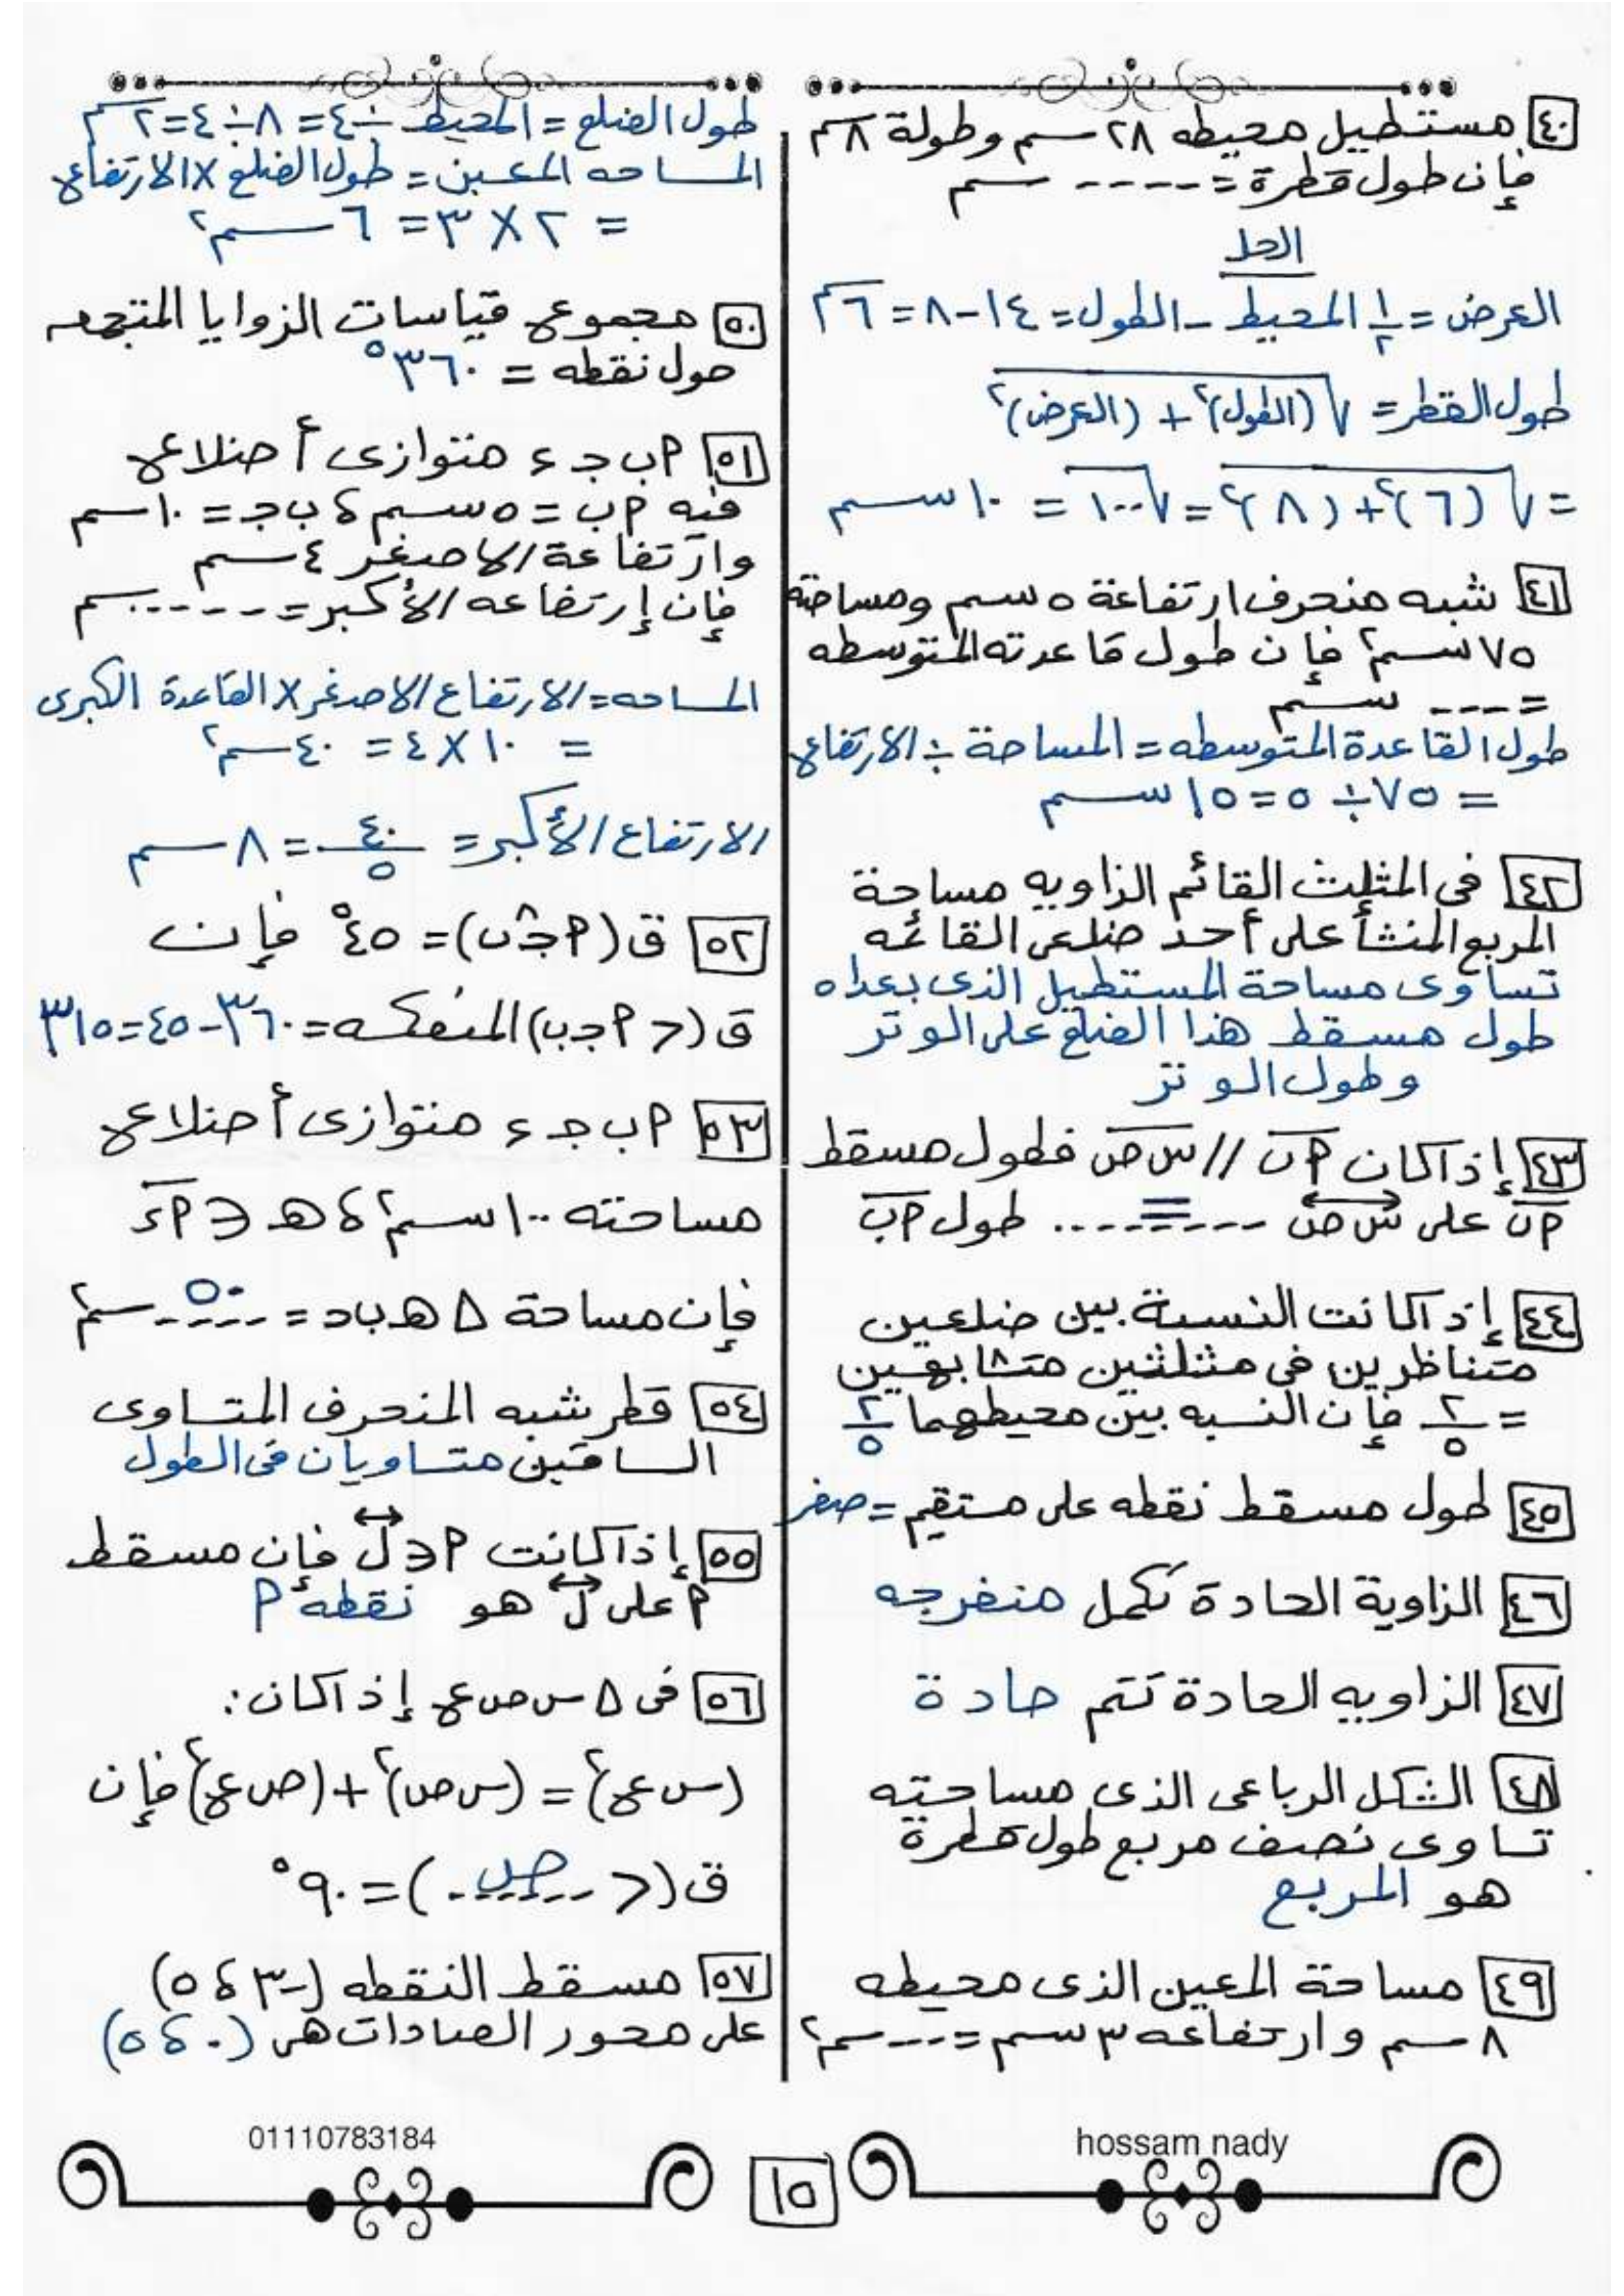 ٤٠ مستطيل محيطه ٢٨ سم وطولة ٨ سم
فإن طول قطرة = ---- سم
الحل
العرض = ١/٢ المحيط - الطول = ١٤ - ٨ = ٦ سم
طول القطر = √(الطول)٢ + (العرض)٢
= √(٦)٢ + (٨)٢ = √١٠٠ = ١٠ سم
٤١ شبه منحرف ارتفاعة ٥ سم ومساحته
٧٥ سم٢ فإن طول قاعدته المتوسطه
= --- سم
طول القاعدة المتوسطه = المساحة ÷ الارتفاع
= ٧٥ ÷ ٥ = ١٥ سم
٤٢ فى المثلث القائم الزاويه مساحة
المربع المنشأ على أحد ضلعى القائمه
تساوى مساحة المستطيل الذى بعداه
طول مسقط هذا الضلع على الوتر
وطول الوتر
٤٣ إذا كان أب // س ص فطول مسقط
أب على س ص ----=---- طول أب
٤٤ إذا كانت النسبة بين ضلعين
متناظرين فى مثلثين متشابهين
= ٢/٥ فإن النسبه بين محيطهما ٢/٥
٤٥ طول مسقط نقطه على مستقيم = صفر
٤٦ الزاوية الحادة تكمل منفرجه
٤٧ الزاويه الحادة تتم حادة
٤٨ الشكل الرباعى الذى مساحته
تساوى نصف مربع طول قطرة
هو المربع
٤٩ مساحة المعين الذى محيطه
٨ سم وارتفاعه ٣ سم = --- سم٢
طول الضلع = المحيط ÷ ٤ = ٨ ÷ ٤ = ٢ سم
المساحه المعين = طول الضلع × الارتفاع
= ٢ × ٣ = ٦ سم٢
٥٠ مجموع قياسات الزوايا المتجمعه
حول نقطه = ٣٦٠°
٥١ أ ب ج ء متوازى أضلاع
فيه أب = ٥ سم ، ب ج = ١٠ سم
وارتفاعة الاصغر ٤ سم
فإن إرتفاعه الأكبر = ----- سم
المساحه = الارتفاع الاصغر × القاعدة الكبرى
= ١٠ × ٤ = ٤٠ سم٢
الارتفاع الأكبر = ٤٠/٥ = ٨ سم
٥٢ ق (أ ج ب) = ٤٥° فإن
ق (> أ ج ب) المنعكسه = ٣٦٠ - ٤٥ = ٣١٥
٥٣ أ ب ج ء متوازى أضلاع
مساحته ١٠٠ سم٢ ، هـ ∈ أء
فإن مساحة ∆ هـ ب ج = --٥٠-- سم٢
٥٤ قطر شبه المنحرف المتساوى
الساقين متساويان فى الطول
٥٥ إذا كانت أ ∈ ل فإن مسقط
أ على ل هو نقطه أ
٥٦ فى ∆ س ص ع إذا كان :
(س ع)٢ = (س ص)٢ + (ص ع)٢ فإن
ق (> --ص--) = ٩٠°
٥٧ مسقط النقطه (-٣ ، ٥)
على محور الصادات هى (٠ ، ٥)
01110783184
١٥
hossam nady